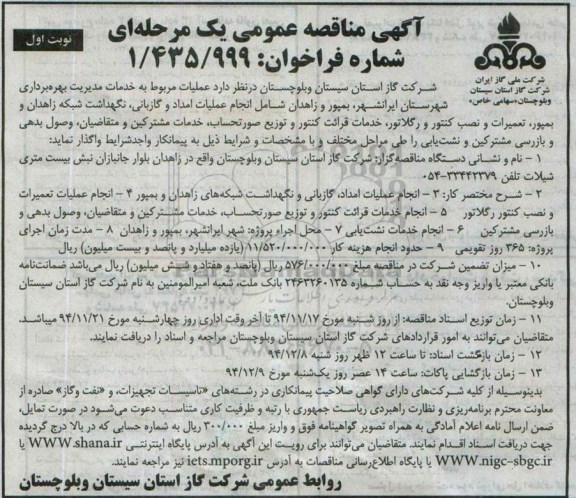 آگهی مناقصه عمومی یک مرحله‌ای
شماره فراخوان: ۱/۴۳۵/۹۹۹
نوبت اول
شرکت ملی گاز ایران
شرکت گاز استان سیستان
وبلوچستان«سهامی خاص»
شرکت گاز استان سیستان وبلوچستان درنظر دارد عملیات مربوط به خدمات مدیریت بهره‌برداری
شهرستان ایرانشهر، بمپور و زاهدان شامل انجام عملیات امداد و گازبانی، نگهداشت شبکه زاهدان و
بمپور، تعمیرات و نصب کنتور و رگلاتور، خدمات قرائت کنتور و توزیع صورتحساب، خدمات مشترکین و متقاضیان، وصول بدهی
و بازرسی مشترکین و نشت‌یابی را طی مراحل مختلف و با مشخصات و شرایط ذیل به پیمانکار واجدشرایط واگذار نماید:
۱ – نام و نشانی دستگاه مناقصه‌گزار: شرکت گاز استان سیستان وبلوچستان واقع در زاهدان بلوار جانبازان نبش بیست متری
شیلات تلفن ۳۳۴۴۲۳۷۹-۰۵۴
۲ – شرح مختصر کار: ۳ – انجام عملیات امداد، گازبانی و نگهداشت شبکه‌های زاهدان و بمپور ۴ – انجام عملیات تعمیرات
و نصب کنتور رگلاتور ۵ – انجام خدمات قرائت کنتور و توزیع صورتحساب، خدمات مشترکین و متقاضیان، وصول بدهی و
بازرسی مشترکین ۶ – انجام خدمات نشت‌یابی ۷ – محل اجراء پروژه: شهر ایرانشهر، بمپور و زاهدان ۸ – مدت زمان اجرای
پروژه: ۳۶۵ روز تقویمی ۹ – حدود انجام هزینه کار ۱۱/۵۲۰/۰۰۰/۰۰۰ (یازده میلیارد و پانصد و بیست میلیون) ریال
۱۰ – میزان تضمین شرکت در مناقصه مبلغ ۵۷۶/۰۰۰/۰۰۰ ریال (پانصد و هفتاد و شش میلیون) ریال می‌باشد ضمانت‌نامه
بانکی معتبر یا واریز وجه نقد به حساب شماره ۲۴۶۳۲۶۰۱۳۵ بانک ملت، شعبه امیرالمومنین به نام شرکت گاز استان سیستان
وبلوچستان.
۱۱ – زمان توزیع اسناد مناقصه: از روز شنبه مورخ ۹۴/۱۱/۱۷ تا آخر وقت اداری روز چهارشنبه مورخ ۹۴/۱۱/۲۱ میباشد.
متقاضیان می‌توانند به امور قراردادهای شرکت گاز استان سیستان وبلوچستان مراجعه و اسناد را دریافت نمایند.
۱۲ – زمان بازگشت اسناد: تا ساعت ۱۲ ظهر روز شنبه ۹۴/۱۲/۸
۱۳ – زمان بازگشایی پاکات: ساعت ۱۴ عصر روز یک‌شنبه مورخ ۹۴/۱۲/۹
بدینوسیله از کلیه شرکت‌های دارای گواهی صلاحیت پیمانکاری در رشته‌های «تاسیسات تجهیزات، و «نفت وگاز» صادره از
معاونت محترم برنامه‌ریزی و نظارت راهبردی ریاست جمهوری با رتبه و ظرفیت کاری متناسب دعوت می‌شود در صورت تمایل،
ضمن ارسال نامه اعلام آمادگی به همراه تصویر گواهینامه فوق و واریز مبلغ ۳۰۰/۰۰۰ ریال به شماره حسابی که در بالا درج گردیده
جهت دریافت اسناد اقدام نمایند. متقاضیان می‌توانند برای رویت این آگهی به آدرس پایگاه اینترنتی WWW.shana.ir یا
WWW.nigc-sbgc.ir یا پایگاه اطلاع‌رسانی مناقصات به آدرس iets.mporg.ir نیز مراجعه نمایند.
روابط عمومی شرکت گاز استان سیستان وبلوچستان